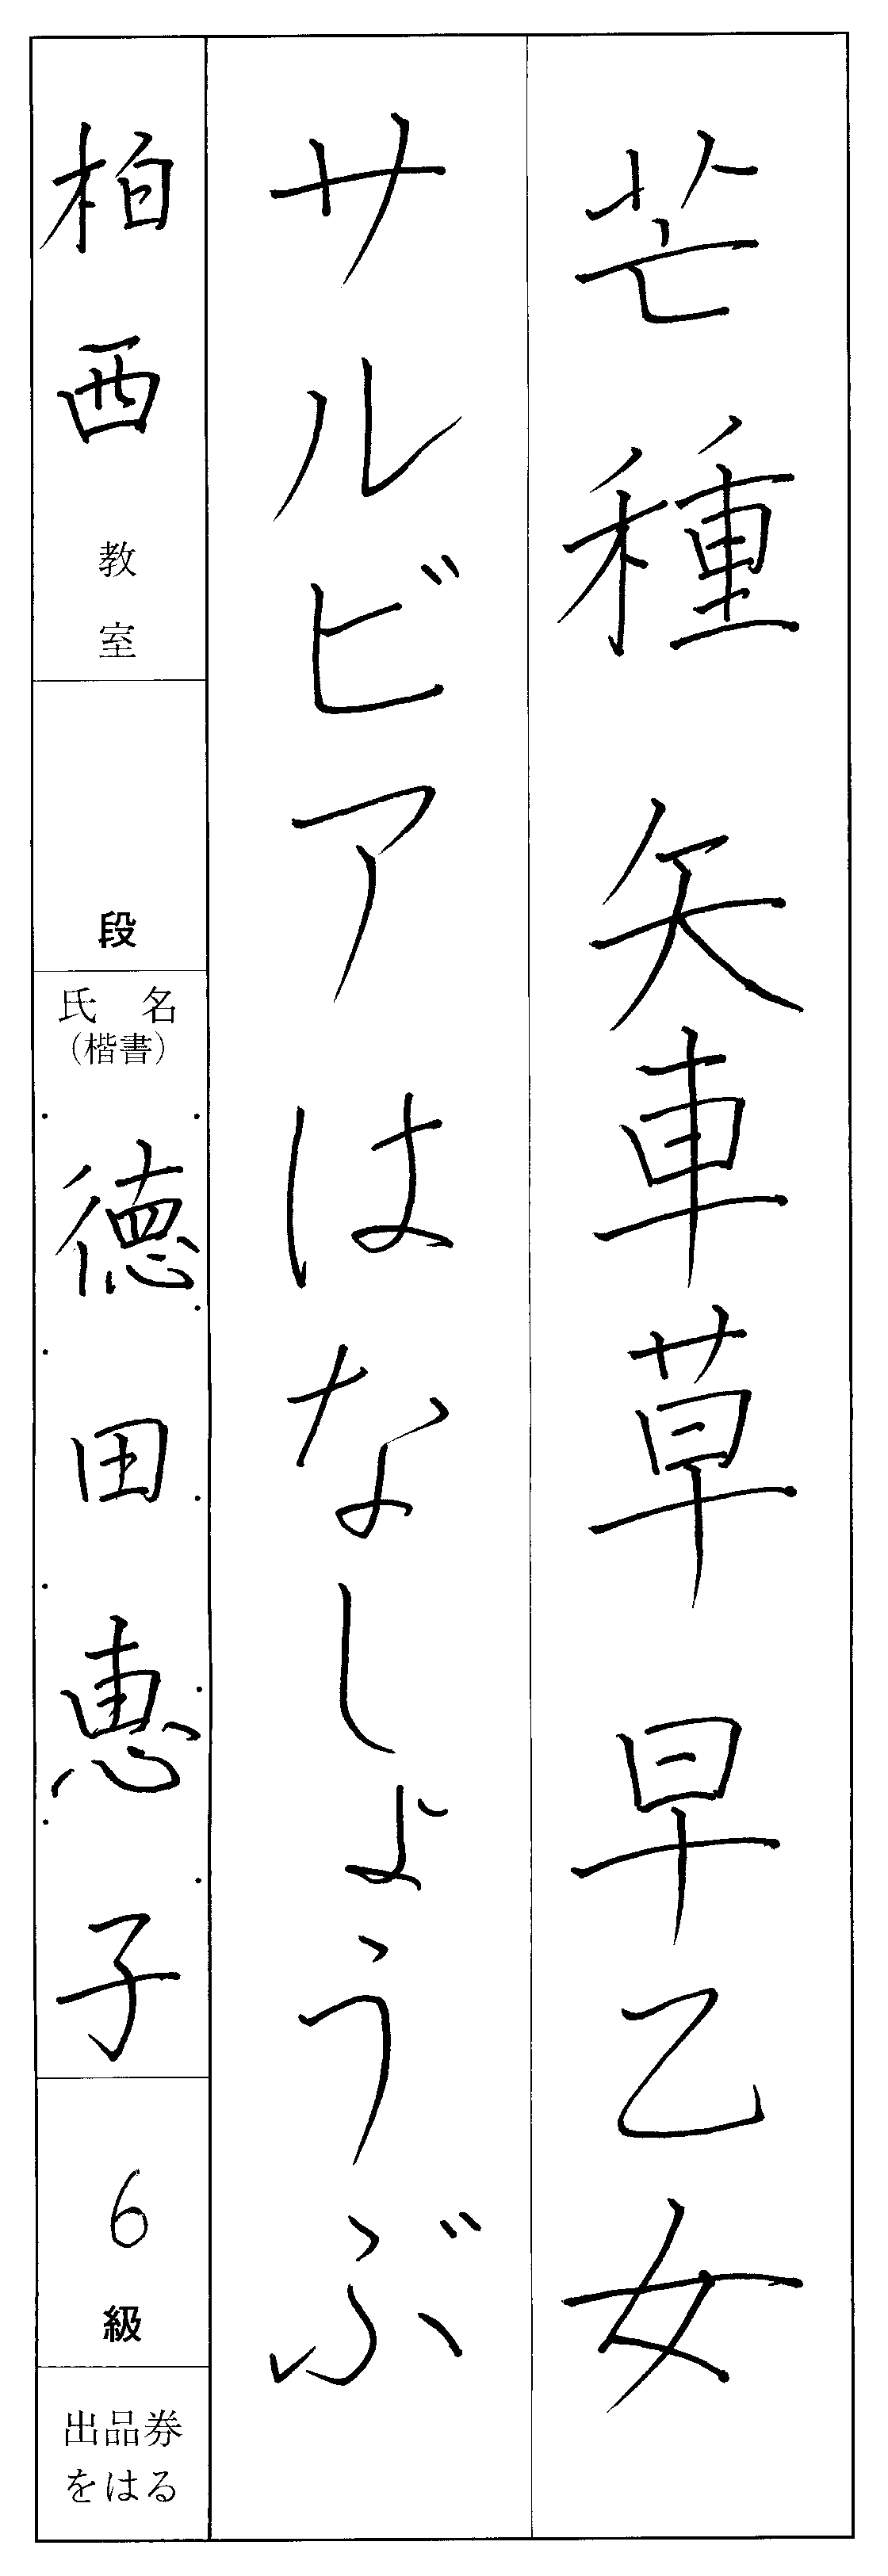 芒種 矢車草 早乙女
サルビア はなしょうぶ
柏西教室
段
氏名
(楷書)
徳田恵子
6級
出品券
をはる